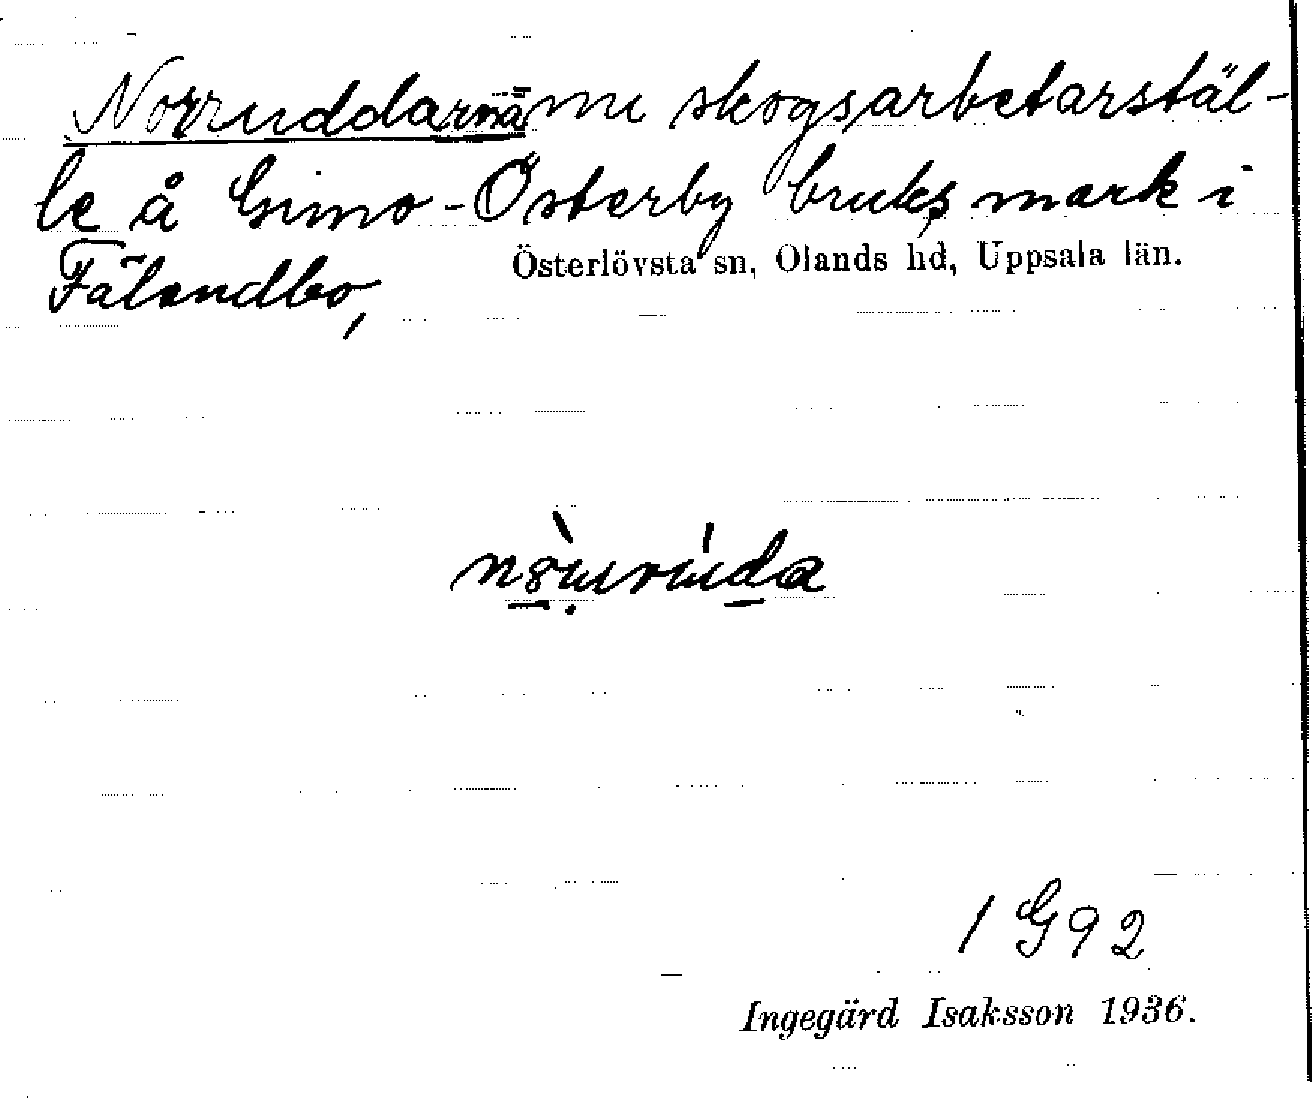 Norruddarna nu skogsarbetarstäl-
le å Gimo-Österby bruks mark i
Fälandbo, Österlövsta sn, Olands hd, Uppsala län.
1 G 9 2
Ingegärd Isaksson 1936.